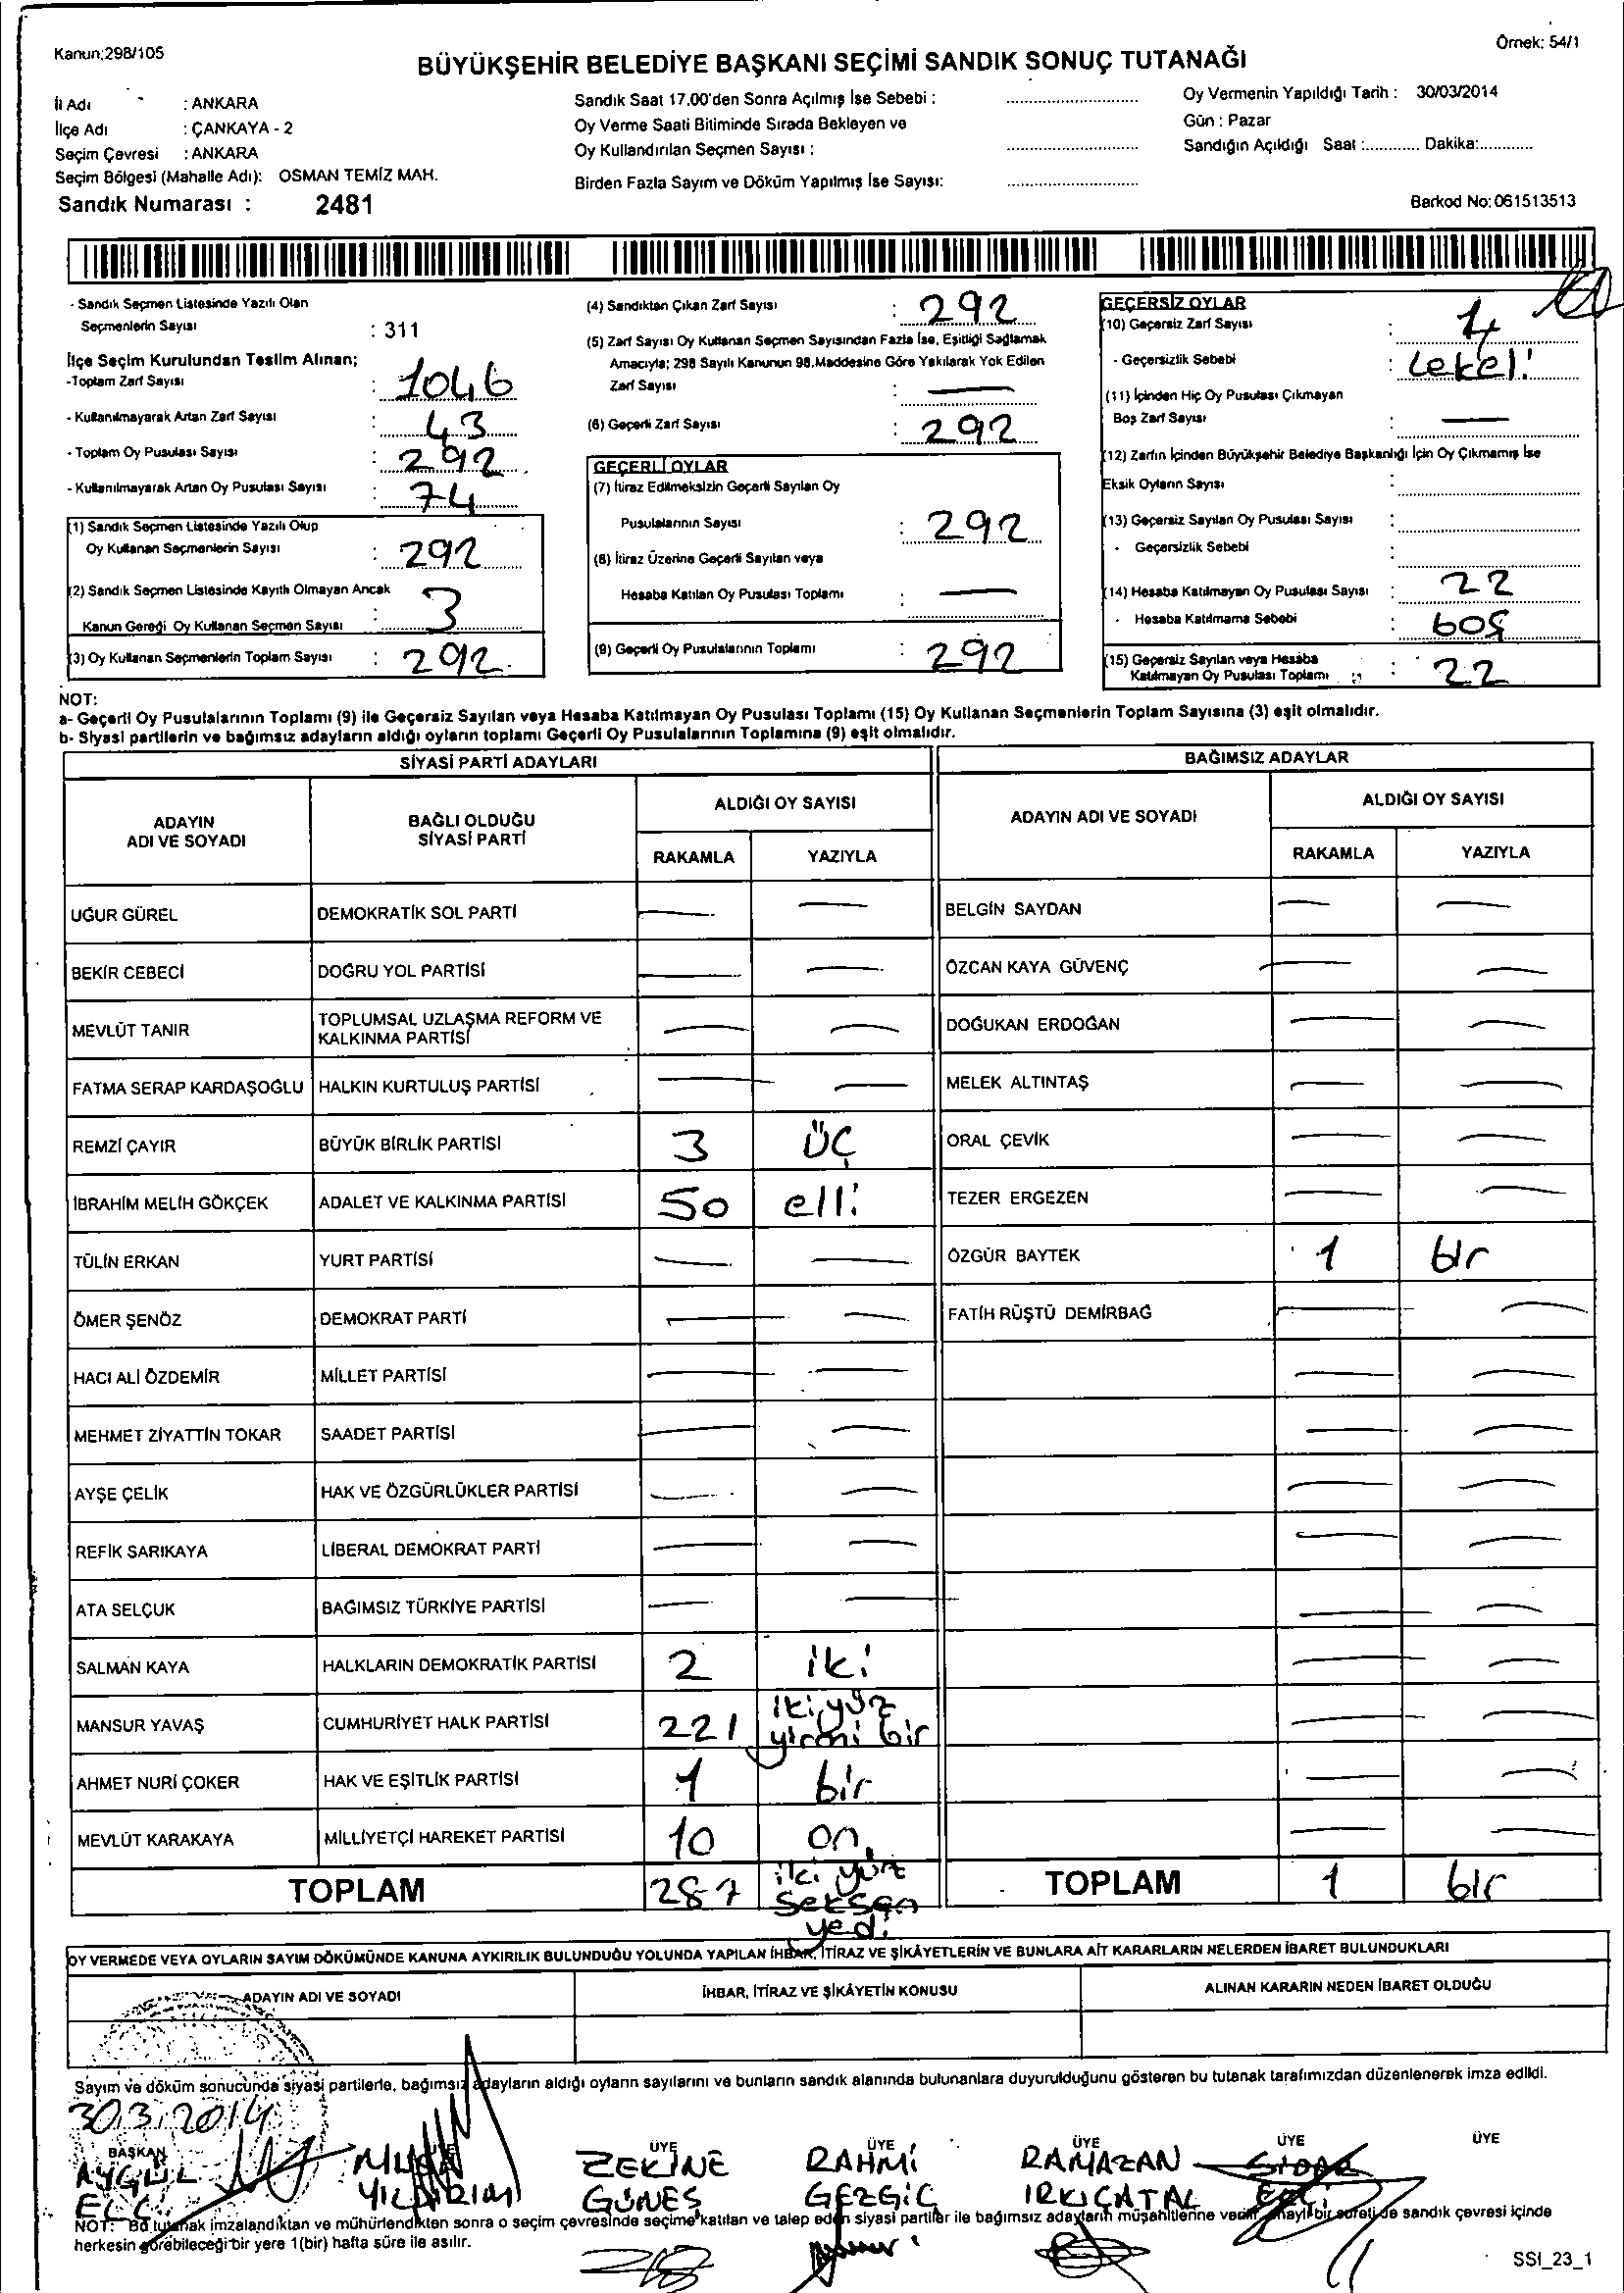 Kanun;298/105
Örnek: 54/1
BÜYÜKŞEHİR BELEDİYE BAŞKANI SEÇİMİ SANDIK SONUÇ TUTANAĞI
İl Adı : ANKARA
İlçe Adı : ÇANKAYA - 2
Seçim Çevresi : ANKARA
Seçim Bölgesi (Mahalle Adı): OSMAN TEMİZ MAH.
Sandık Numarası : 2481
Sandık Saat 17.00'den Sonra Açılmış İse Sebebi :
Oy Verme Saati Bitiminde Sırada Bekleyen ve
Oy Kullandırılan Seçmen Sayısı :
Birden Fazla Sayım ve Döküm Yapılmış İse Sayısı:
Oy Vermenin Yapıldığı Tarih : 30/03/2014
Gün : Pazar
Sandığın Açıldığı Saat :............ Dakika:............
Barkod No:061513513
- Sandık Seçmen Listesinde Yazılı Olan
Seçmenlerin Sayısı : 311
İlçe Seçim Kurulundan Teslim Alınan;
-Toplam Zarf Sayısı : 1046
- Kullanılmayarak Artan Zarf Sayısı : 43
- Toplam Oy Pusulası Sayısı : 292
- Kullanılmayarak Artan Oy Pusulası Sayısı : 74
(1) Sandık Seçmen Listesinde Yazılı Olup
Oy Kullanan Seçmenlerin Sayısı : 292
(2) Sandık Seçmen Listesinde Kayıtlı Olmayan Ancak
Kanun Gereği Oy Kullanan Seçmen Sayısı : 3
(3) Oy Kullanan Seçmenlerin Toplam Sayısı : 292
(4) Sandıktan Çıkan Zarf Sayısı : 292
(5) Zarf Sayısı Oy Kullanan Seçmen Sayısından Fazla İse, Eşitliği Sağlamak
Amacıyla; 298 Sayılı Kanunun 98.Maddesine Göre Yakılarak Yok Edilen
Zarf Sayısı : —
(6) Geçerli Zarf Sayısı : 292
GEÇERLİ OYLAR
(7) İtiraz Edilmeksizin Geçerli Sayılan Oy
Pusulalarının Sayısı : 292
(8) İtiraz Üzerine Geçerli Sayılan veya
Hesaba Katılan Oy Pusulası Toplamı : —
(9) Geçerli Oy Pusulalarının Toplamı : 292
GEÇERSİZ OYLAR
(10) Geçersiz Zarf Sayısı : 4
- Geçersizlik Sebebi : Lekeli
(11) İçinden Hiç Oy Pusulası Çıkmayan
Boş Zarf Sayısı : —
(12) Zarfın İçinden Büyükşehir Belediye Başkanlığı İçin Oy Çıkmamış İse
Eksik Oyların Sayısı :
(13) Geçersiz Sayılan Oy Pusulası Sayısı :
- Geçersizlik Sebebi :
(14) Hesaba Katılmayan Oy Pusulası Sayısı : 22
- Hesaba Katılmama Sebebi : boş
(15) Geçersiz Sayılan veya Hesaba
Katılmayan Oy Pusulası Toplamı : 22
NOT:
a- Geçerli Oy Pusulalarının Toplamı (9) ile Geçersiz Sayılan veya Hesaba Katılmayan Oy Pusulası Toplamı (15) Oy Kullanan Seçmenlerin Toplam Sayısına (3) eşit olmalıdır.
b- Siyasi partilerin ve bağımsız adayların aldığı oyların toplamı Geçerli Oy Pusulalarının Toplamına (9) eşit olmalıdır.
SİYASİ PARTİ ADAYLARI
ADAYIN ADI VE SOYADI
BAĞLI OLDUĞU SİYASİ PARTİ
ALDIĞI OY SAYISI
RAKAMLA YAZIYLA
UĞUR GÜREL DEMOKRATİK SOL PARTİ — —
BEKİR CEBECİ DOĞRU YOL PARTİSİ — —
MEVLÜT TANIR TOPLUMSAL UZLAŞMA REFORM VE KALKINMA PARTİSİ — —
FATMA SERAP KARDAŞOĞLU HALKIN KURTULUŞ PARTİSİ — —
REMZİ ÇAYIR BÜYÜK BİRLİK PARTİSİ 3 ÜÇ
İBRAHİM MELİH GÖKÇEK ADALET VE KALKINMA PARTİSİ 50 elli
TÜLİN ERKAN YURT PARTİSİ — —
ÖMER ŞENÖZ DEMOKRAT PARTİ — —
HACI ALİ ÖZDEMİR MİLLET PARTİSİ — —
MEHMET ZİYATTİN TOKAR SAADET PARTİSİ — —
AYŞE ÇELİK HAK VE ÖZGÜRLÜKLER PARTİSİ — —
REFİK SARIKAYA LİBERAL DEMOKRAT PARTİ — —
ATA SELÇUK BAĞIMSIZ TÜRKİYE PARTİSİ — —
SALMAN KAYA HALKLARIN DEMOKRATİK PARTİSİ 2 iki
MANSUR YAVAŞ CUMHURİYET HALK PARTİSİ 221 ikiyüz yirmi bir
AHMET NURİ ÇOKER HAK VE EŞİTLİK PARTİSİ 1 bir
MEVLÜT KARAKAYA MİLLİYETÇİ HAREKET PARTİSİ 10 on
TOPLAM 287 iki yüz seksen yedi
BAĞIMSIZ ADAYLAR
ADAYIN ADI VE SOYADI
ALDIĞI OY SAYISI
RAKAMLA YAZIYLA
BELGİN SAYDAN — —
ÖZCAN KAYA GÜVENÇ — —
DOĞUKAN ERDOĞAN — —
MELEK ALTINTAŞ — —
ORAL ÇEVİK — —
TEZER ERGEZEN — —
ÖZGÜR BAYTEK 1 bir
FATİH RÜŞTÜ DEMİRBAĞ — —
TOPLAM 1 bir
OY VERMEDE VEYA OYLARIN SAYIM DÖKÜMÜNDE KANUNA AYKIRILIK BULUNDUĞU YOLUNDA YAPILAN İHBAR, İTİRAZ VE ŞİKÂYETLERİN VE BUNLARA AİT KARARLARIN NELERDEN İBARET BULUNDUKLARI
ADAYIN ADI VE SOYADI
İHBAR, İTİRAZ VE ŞİKÂYETİN KONUSU
ALINAN KARARIN NEDEN İBARET OLDUĞU
Sayım ve döküm sonucunda siyasi partilerle, bağımsız adayların aldığı oyların sayılarını ve bunların sandık alanında bulunanlara duyurulduğunu gösteren bu tutanak tarafımızdan düzenlenerek imza edildi.
30.3.2014
BAŞKAN ÜYE ÜYE ÜYE ÜYE ÜYE ÜYE
AYGÜL
YILDIRIM
ZEKİNE GÜNEŞ
RAHMİ GEZGİÇ
RAMAZAN IRKIÇATAL
NOT: Bu tutanak imzalandıktan ve mühürlendikten sonra o seçim çevresinde seçime katılan ve talep eden siyasi partiler ile bağımsız adayların müşahitlerine verilir, onaylı bir sureti de sandık çevresi içinde
herkesin görebileceği bir yere 1(bir) hafta süre ile asılır.
SSI_23_1